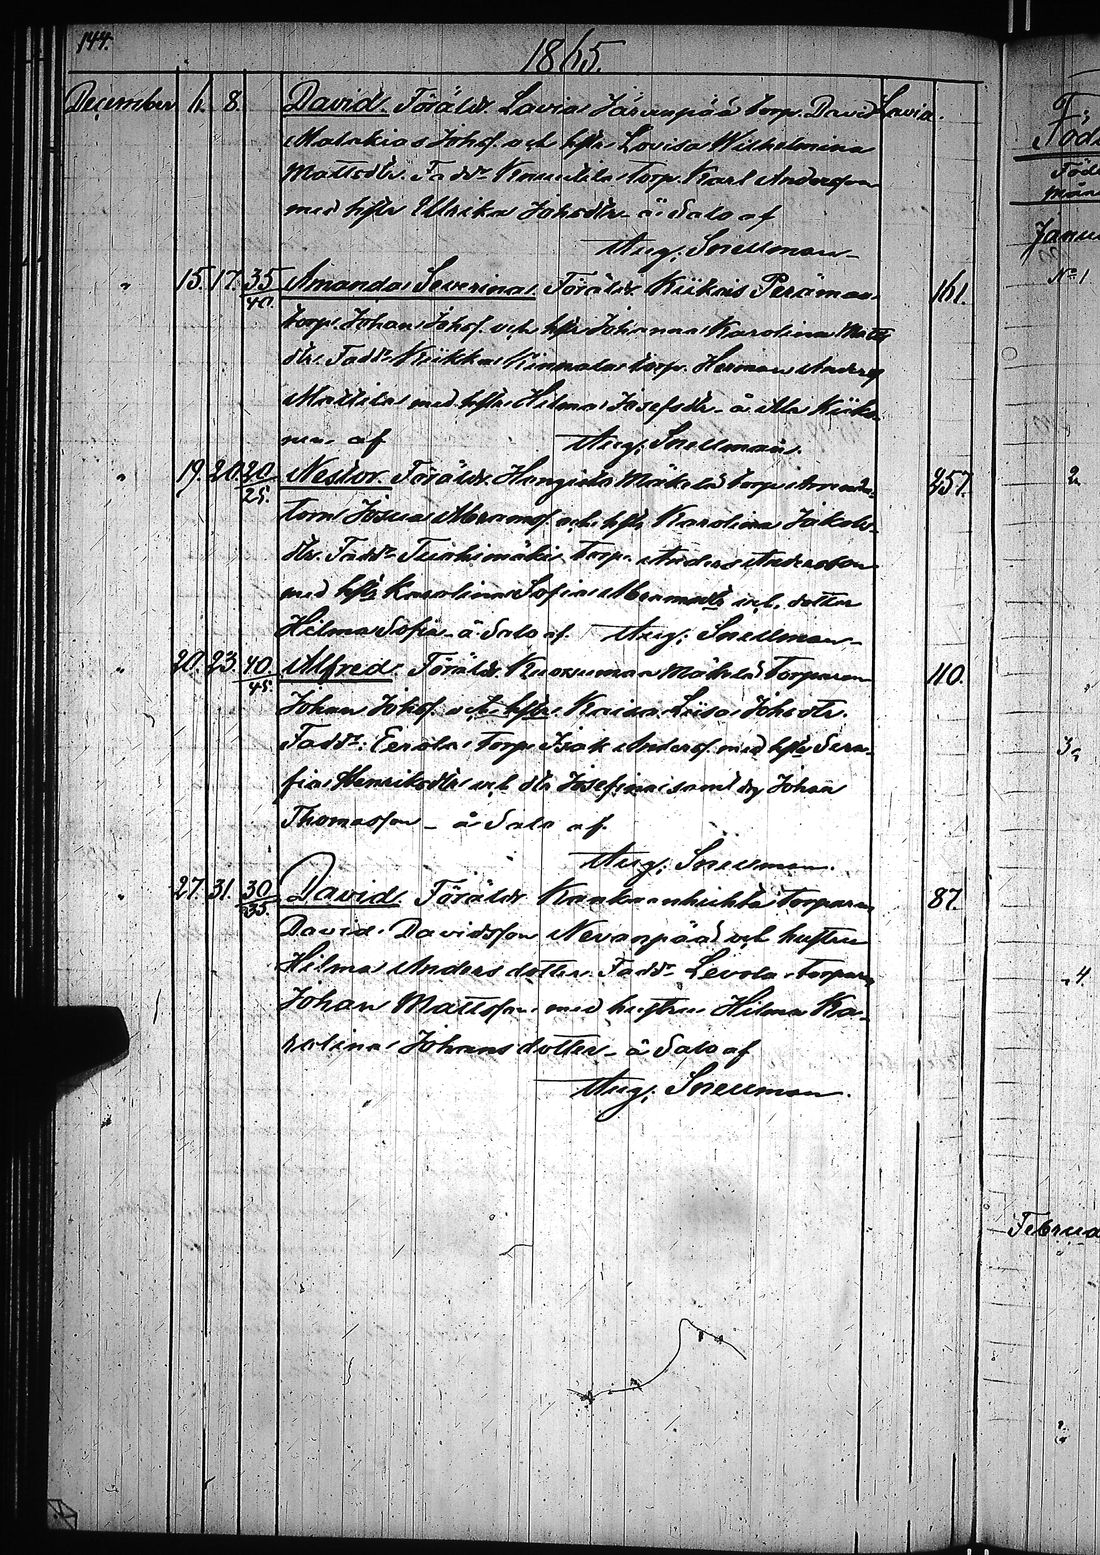 144.
1865.
December 6. 8. David. Föräldr. Lavia Järvenpää torp. David Lavia.
Malakias Johsf. och hstr Lovisa Wilhelmina
Mattsdtr. Fadd. torp. Karl Andersson
med hstr Ullrika Johsdtr å Salo af
Aug. Snellman
" 15. 17. 35/40. Amanda Severina. Föräldr. Kiikois Peräman 161.
torp. Johan Johsf. och hstr Johanna Karolina Matts
dtr. Fadd. Kiikka torp. Herman Andersf
Mattila med hstr Hilma Josefsdtr å
af Aug. Snellman.
" 19. 20. 20/25. Nestor. Föräldr. Mäkelä torp. 257.
Josua Abramsf. och hstr Karolina Jakobs-
dtr. Fadd. torp. Anders Andersson
med hstr Karolina Sofia Abramsdtr och dotter
Hilma Sofia å Salo af Aug. Snellman
" 20. 23. 40/45. Alfred. Föräldr. Kuorsuman Mäkelä Torparen 110.
Johan Johsf. och hstr Kaisa Liisa Johsdtr.
Fadd. Eerola torp. Isak Andersf. med hstr Sera-
fia Henriksdtr och dtr Josefina samt dg Johan
Thomasson å Salo af
Aug. Snellman.
" 27. 31. 30/35. David. Föräldr. torparen 87.
David Davidsson Nevanpää och hustru
Hilma Andersdotter. Fadd. Levola torparen
Johan Mattsson med hustru Hilma Ka-
rolina Johansdotter å Salo af
Aug. Snellman.
Föd
Föd
mån
Janu
No 1
2
3
4.
Februa